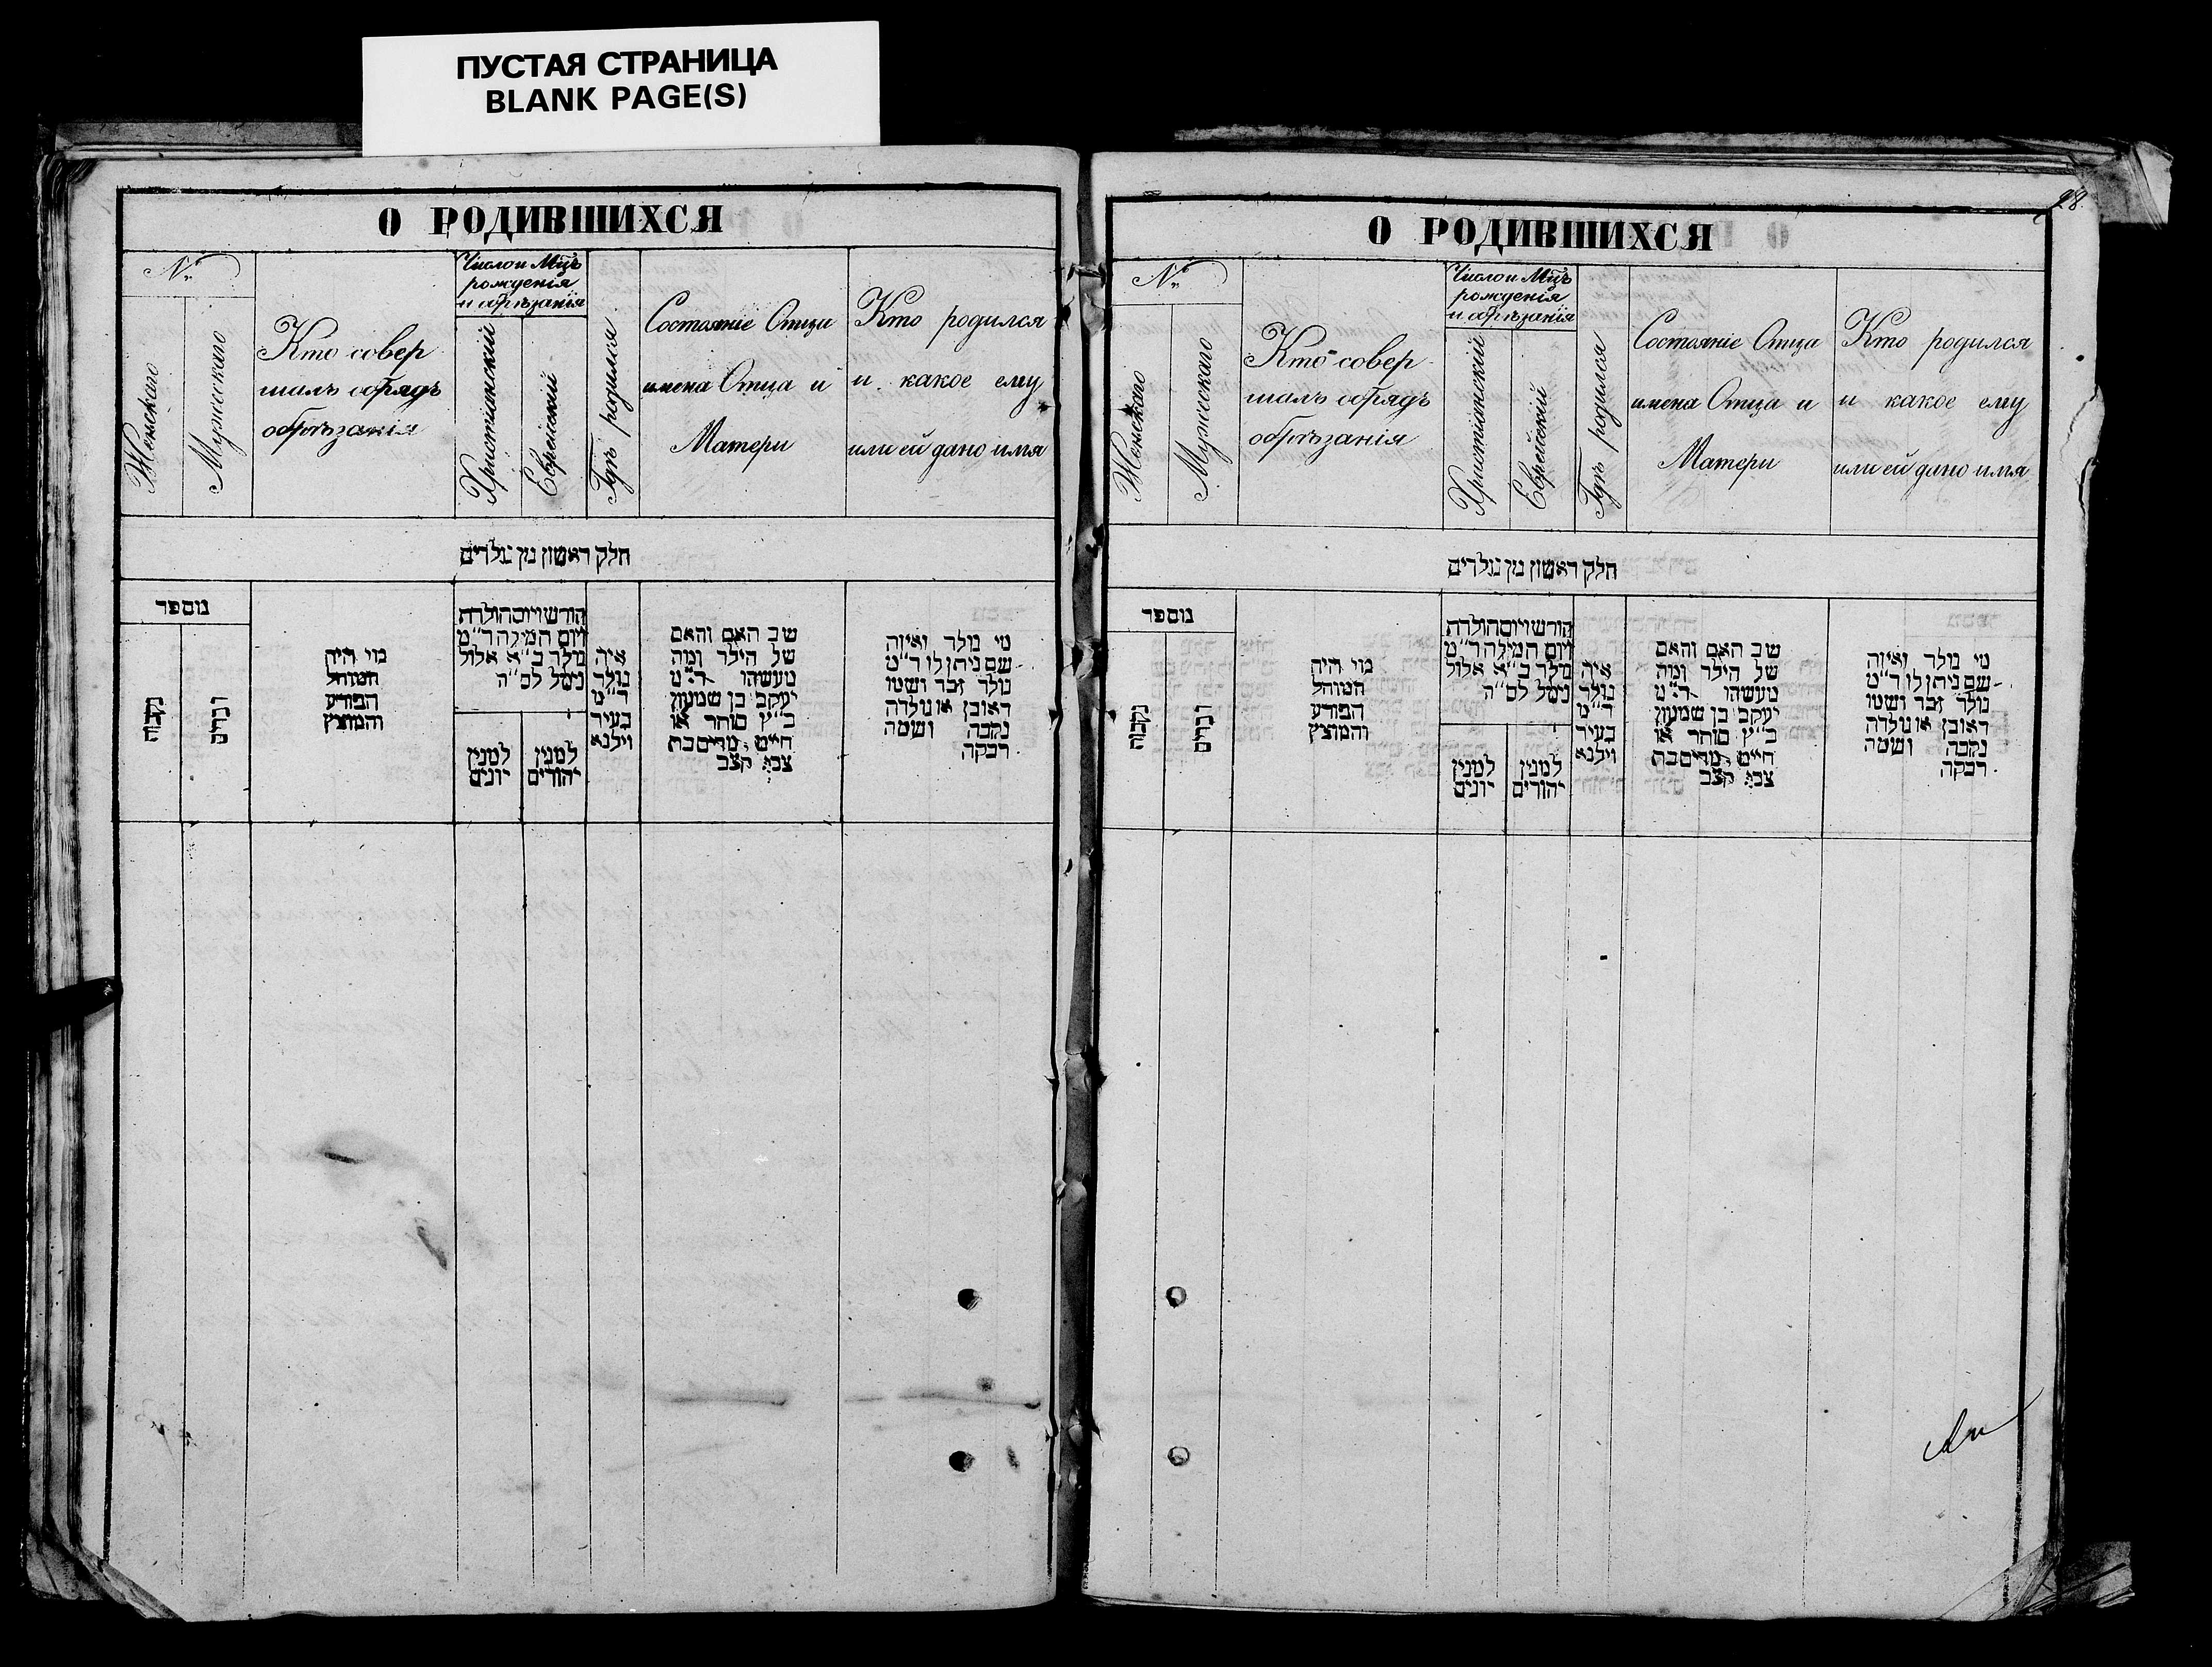 ПУСТАЯ СТРАНИЦА
BLANK PAGE(S)
О РОДИВШИХСЯ
№
Женскаго
Мужескаго
Кто совер
шалъ обрядъ
обрѣзанія
Число и Мцъ
рожденія
и обрѣзанія
Христіанскій
Еврейскій
Гдѣ родился
Состояніе Отца
имена Отца и
Матери
Кто родился
и какое ему
или ей дано имя
חלק ראשון מן נולדים
מספר
נקבות
זכרים
מי היה
המוהל
הפורע
והמוצץ
חודש ויום הולדת
ויום המילה ד״מ
נולד כ״א אלול
נימל לס״ה
למנין
יונים
למנין
יהודים
איה
נולד
ד״מ
בעיר
וילנא
שם האב והאם
של הילד ומה
מעשהו ד״מ
יעקב בן שמעון
כ״ץ סוחר או
חייט מרים בת
צבי קצב
מי נולד ואיזה
שם ניתן לו ד״מ
נולד זכר ושמו
ראובן או נולדה
נקבה ושמה
רבקה
28.
О РОДИВШИХСЯ
№
Женскаго
Мужескаго
Кто совер
шалъ обрядъ
обрѣзанія
Число и Мцъ
рожденія
и обрѣзанія
Христіанскій
Еврейскій
Гдѣ родился
Состояніе Отца
имена Отца и
Матери
Кто родился
и какое ему
или ей дано имя
חלק ראשון מן נולדים
מספר
נקבות
זכרים
מי היה
המוהל
הפורע
והמוצץ
חודש ויום הולדת
ויום המילה ד״מ
נולד כ״א אלול
נימל לס״ה
למנין
יונים
למנין
יהודים
איה
נולד
ד״מ
בעיר
וילנא
שם האב והאם
של הילד ומה
מעשהו ד״מ
יעקב בן שמעון
כ״ץ סוחר או
חייט מרים בת
צבי קצב
מי נולד ואיזה
שם ניתן לו ד״מ
נולד זכר ושמו
ראובן או נולדה
נקבה ושמה
רבקה